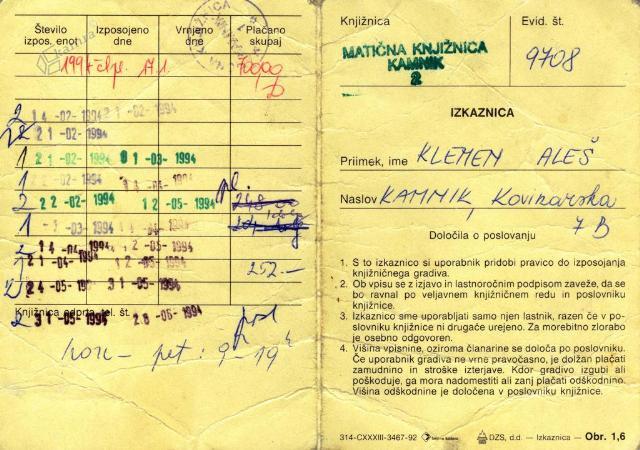 Število izpos. enot
Izposojeno dne
Vrnjeno dne
Plačano skupaj
2 14 -02- 1994 21 -02- 1994
22 21 -02- 1994
1 21 -02- 1994 01 -03- 1994
1
2 22 -02- 1994 12 -05- 1994
1
2 14 -04- 1994 12 -05- 1994
1 21 -04- 1994 252.-
2 24 -05- 1994 31 -05- 1994
Knjižnica odprta, tel. št.
2 31 -05- 1994 28 -06- 1994
pon - pet: 9-19h
Knjižnica
Evid. št.
MATIČNA KNJIŽNICA
KAMNIK
2
9708
IZKAZNICA
Priimek, ime KLEMEN ALEŠ
Naslov KAMNIK, Kovinarska
7B
Določila o poslovanju
1. S to izkaznico si uporabnik pridobi pravico do izposojanja
knjižničnega gradiva.
2. Ob vpisu se z izjavo in lastnoročnim podpisom zaveže, da se
bo ravnal po veljavnem knjižničnem redu in poslovniku
knjižnice.
3. Izkaznico sme uporabljati samo njen lastnik, razen če v po-
slovniku knjižnice ni drugače urejeno. Za morebitno zlorabo
je osebno odgovoren.
4. Višina vpisnine, oziroma članarine se določa po poslovniku.
Če uporabnik gradiva ne vrne pravočasno, je dolžan plačati
zamudnino in stroške izterjave. Kdor gradivo izgubi ali
poškoduje, ga mora nadomestiti ali zanj plačati odškodnino.
Višina odškodnine je določena v poslovniku knjižnice.
314-CXXXIII-3467-92
DZS, d.d. — Izkaznica — Obr. 1,6